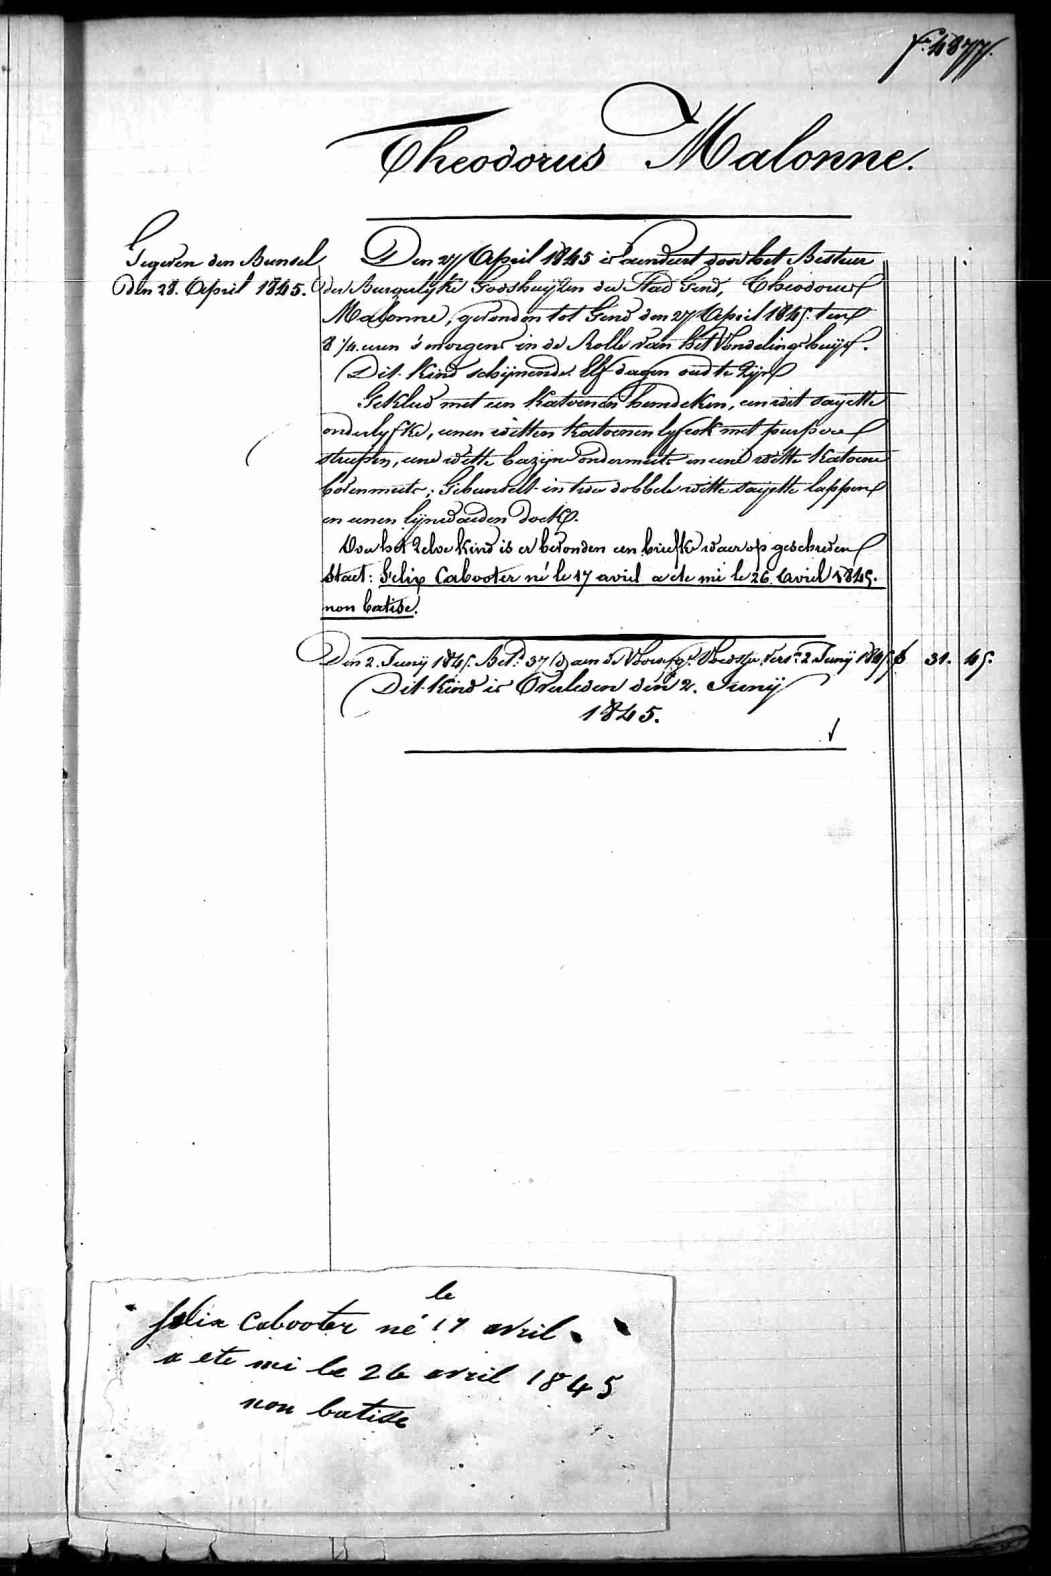 fo. 4877.
Theodorus Malonne.
Gegeven den Bunsel
den 28. April 1845.
Den 27 April 1845 is aenveert door het Bestuer
der Burgelyke Godshuyzen der Stad Gend, Theodorus
Malonne, gevonden tot Gend den 27 April 1845. ten
8 1/4 uren s'morgens in de Rolle van het Vondelinghuys.
Dit kind schijnende Elf dagen oud te zijn
Gekleed met een katoenen hemdeken, een wit sayette
onderlyfke, eenen witten katoenen lyfrok met purpere
streepen, eene witte bazijne ondermuts en eene witte katoene
bovenmuts; Gebunselt in twee dobbele witte sayette lappen
en eenen lijnwaeden doek.
Voor het zelve kind is er bevonden een briefke waer op geschreven
staet: Felix Cabooter né le 17 avril a ete mi le 26. avril 1845.
non batise.
Den 2. Junij 1845. Bet. 37 aen de Voedster 2 Junij 1845 6 31. 45.
Dit kind is Overleden den 2. Junij
1845.
le
felix Cabooter né 17 avril
a ete mi le 26 avril 1845
non batise